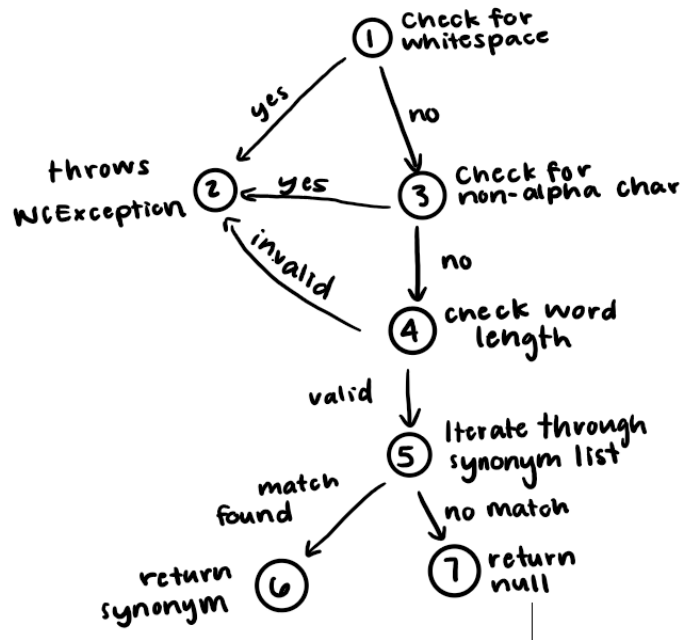 1
Check for
whitespace
yes
no
throws
WCException
2
yes
3
Check for
non-alpha char
invalid
no
4
check word
length
valid
5
Iterate through
synonym list
match
found
no match
return
synonym
6
7
return
null